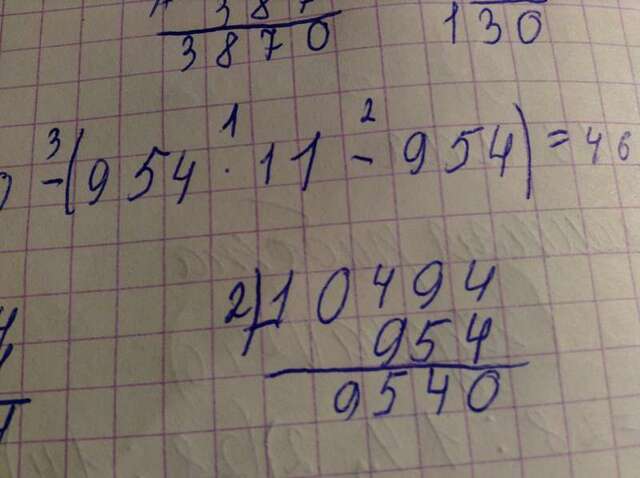 387
3870
130
3 1 2
-(954 · 11 - 954) = 46
2) - 10494
954
9540